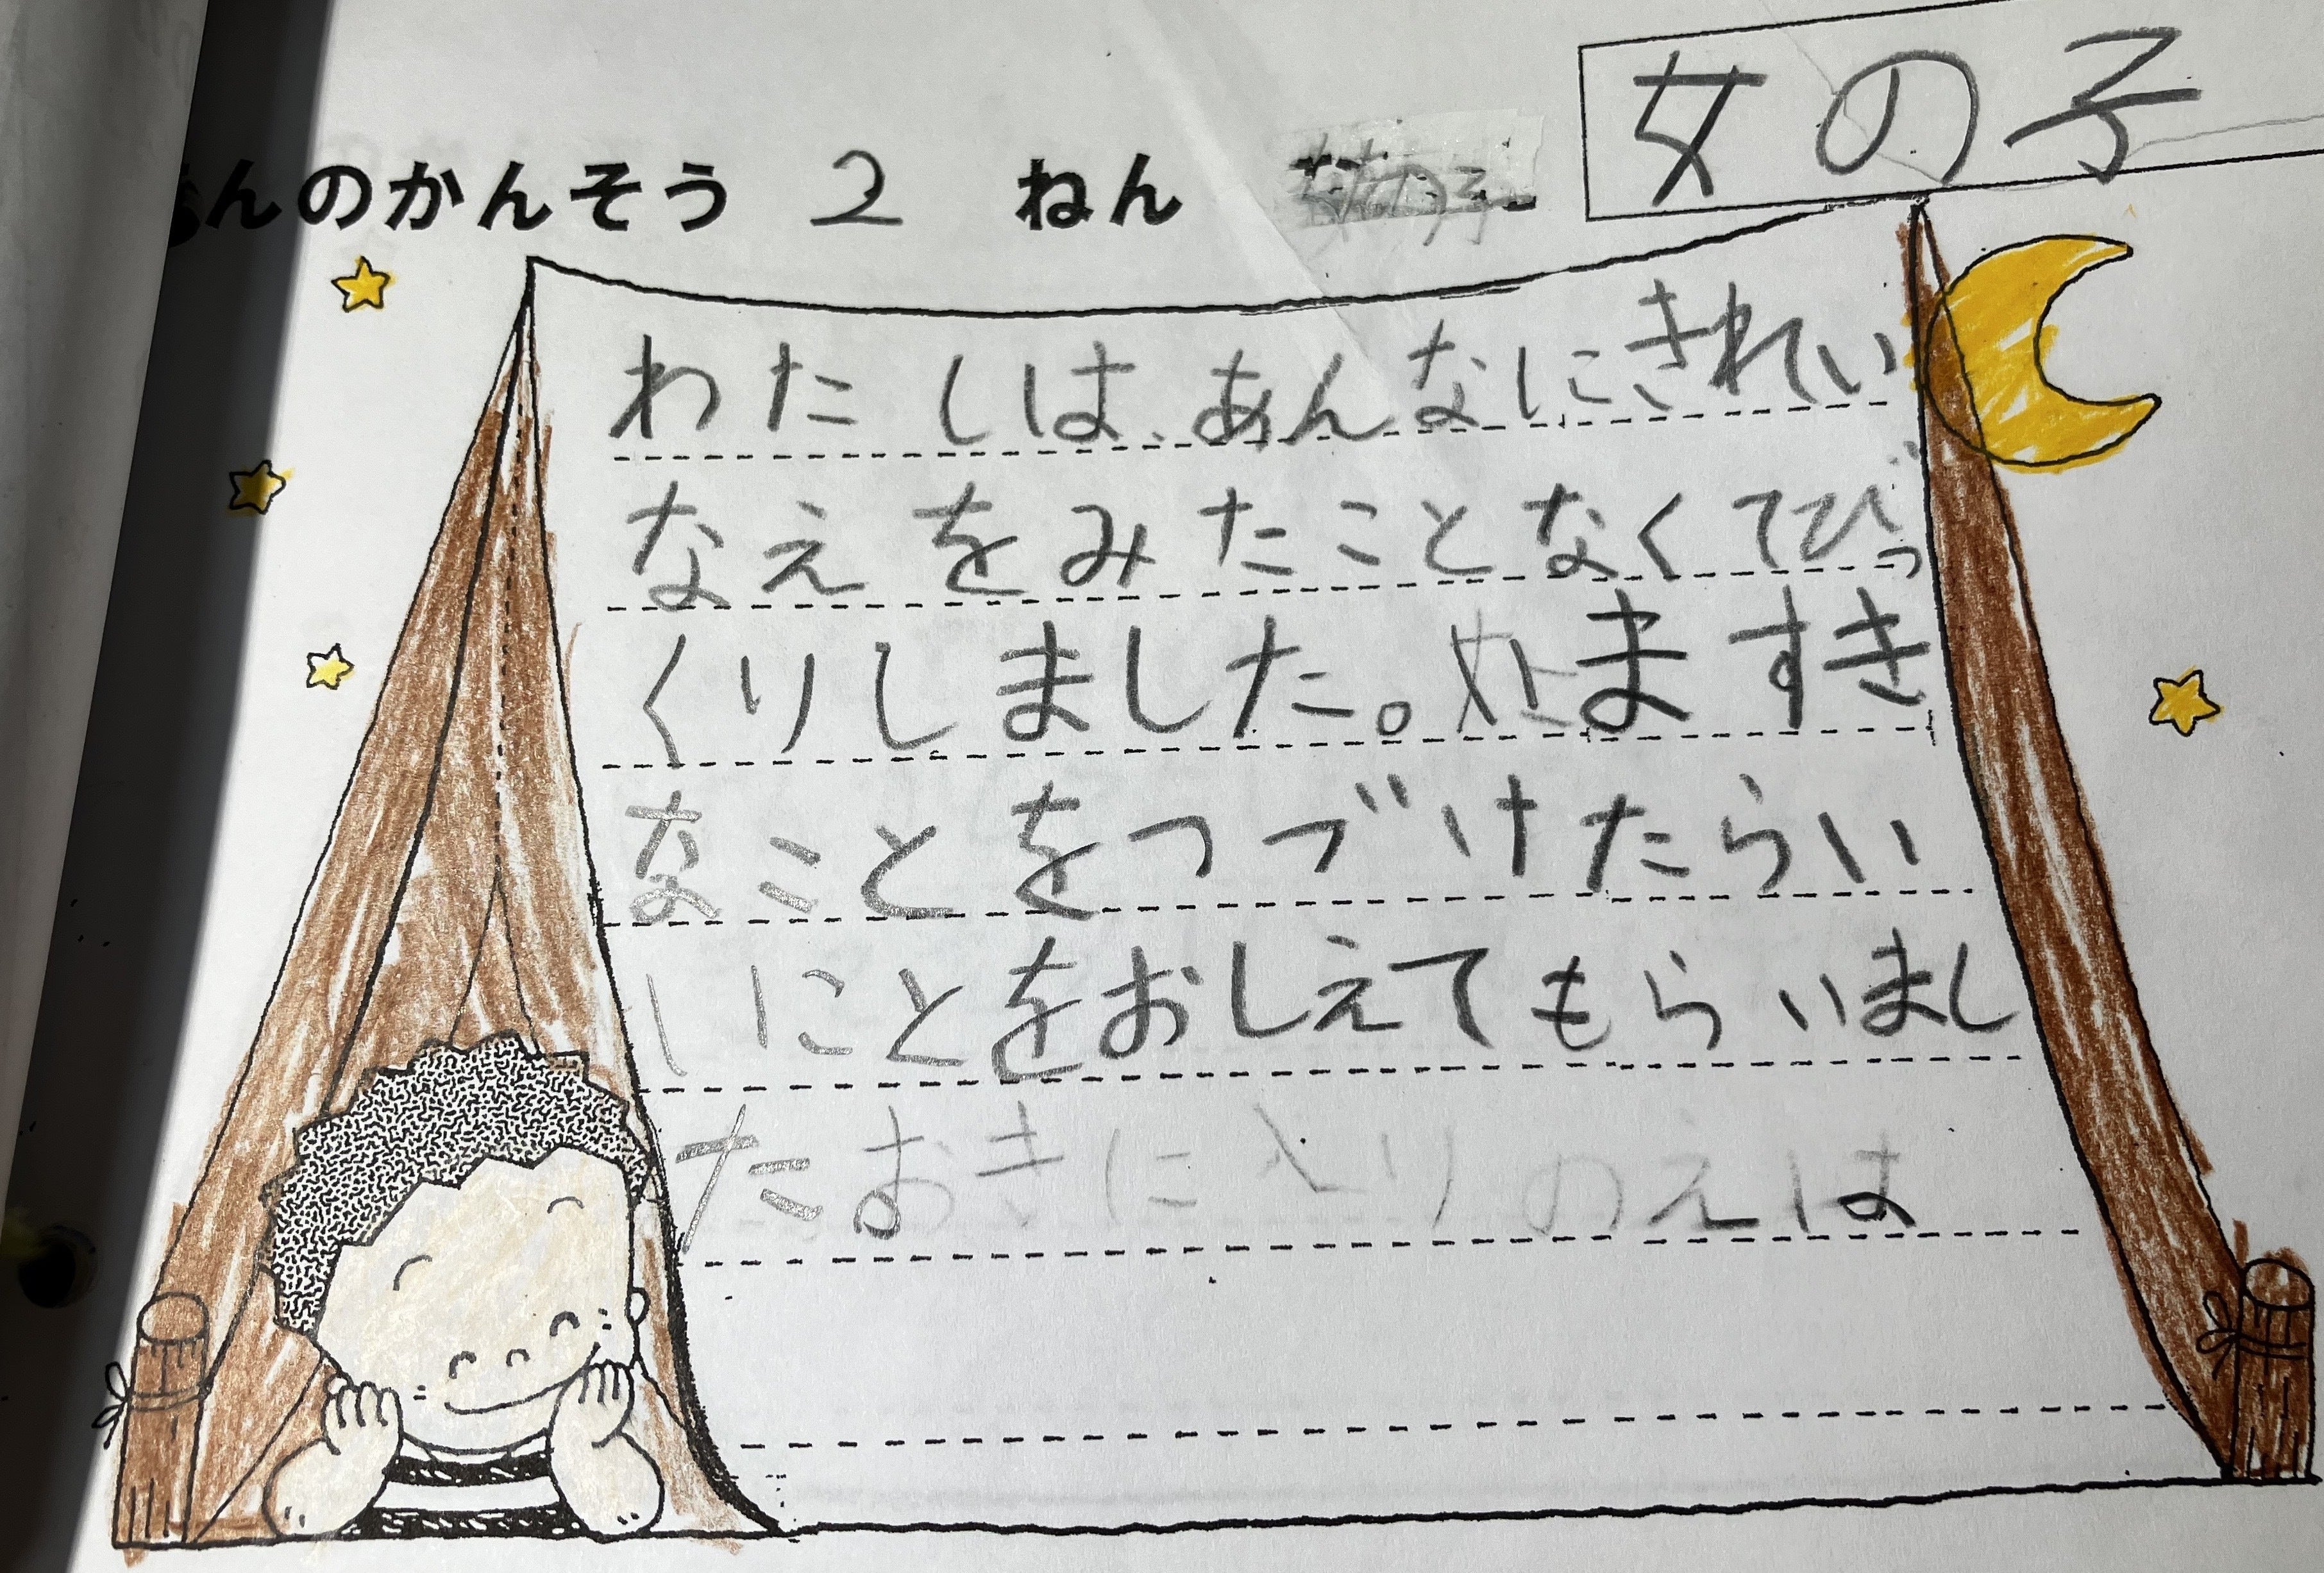 んのかんそう 2 ねん
女の子
わたしは、あんなにきれい
なえをみたことなくてびっ
くりしました。たますき
なことをつづけたらい
いことをおしえてもらいまし
たおきに入りのえは